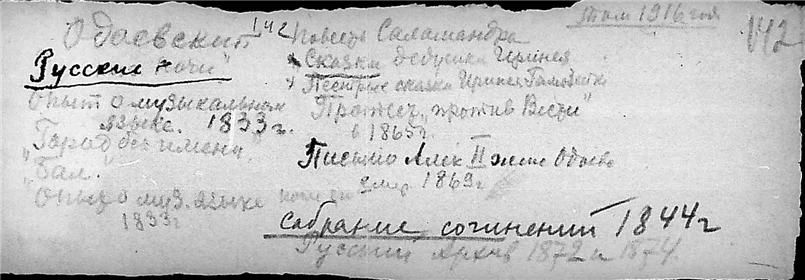 том 1916 год
142
Одоевский 142
"Русские ночи"
Опыт о музыкальном
языке. 1833 г.
"Город без имени"
"Бал."
Опыт о муз. языке
1833 г
Повесть Саламандра
Сказки дедушки Иринея
+ Пестрые сказки Иринея
Протест "против Вести"
в 1865 г.
Письмо Алек II жене Одоевс
умер 1869 г
Собрание сочинений 1844 г
Русский Архив 1872 и 1874.